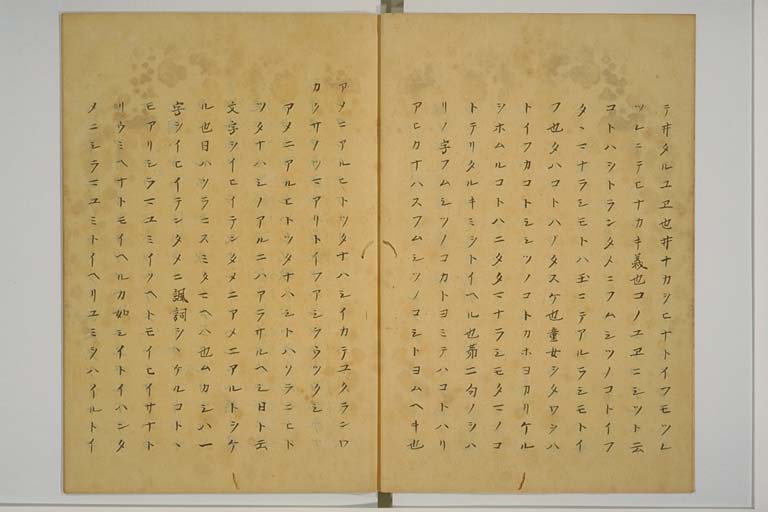 テヰタルユヱ也井ナカシヒナトイフモツレ
ツレニテヒナカキ義也コノユヱニシツト云
コトハシトランタメニフムシツノコトイフ
タヽマナラシモトハ玉ニテアルラシモトイ
フ也タハコトハノタスケ也童女シタワシハ
トイフカコトシシツノコトカホヨカリケル
シホムルコトハニタタマナラシモタマノコ
トテリタルキミシトイヘル也第二句ノシハ
リノ字フムシツノコカトヨミテハコトハリ
アヒカナハスフムシツノコシトヨムヘキ也
アメニアルヒトツタナハシイカテユクランワ
カクサノツマアリトイフアシラウツクシ
アメニアルヒトツタナハシトハソラニヒト
ツタナハシノアルニハアラサルヘシ日ト云
文字シイヒイテンタメニアメニアルトシケ
ル也日ハソラニスミタマヘハ也ムカシハ一
字シイヒイテンタメニ諷詞シヽケルコトヽ
モアリシラマユミイソヘトモイヒイサナト
リウミヘナトモイヘルカ如シイトイハンタ
メニシラマユミトイヘリユミシハイルトイ